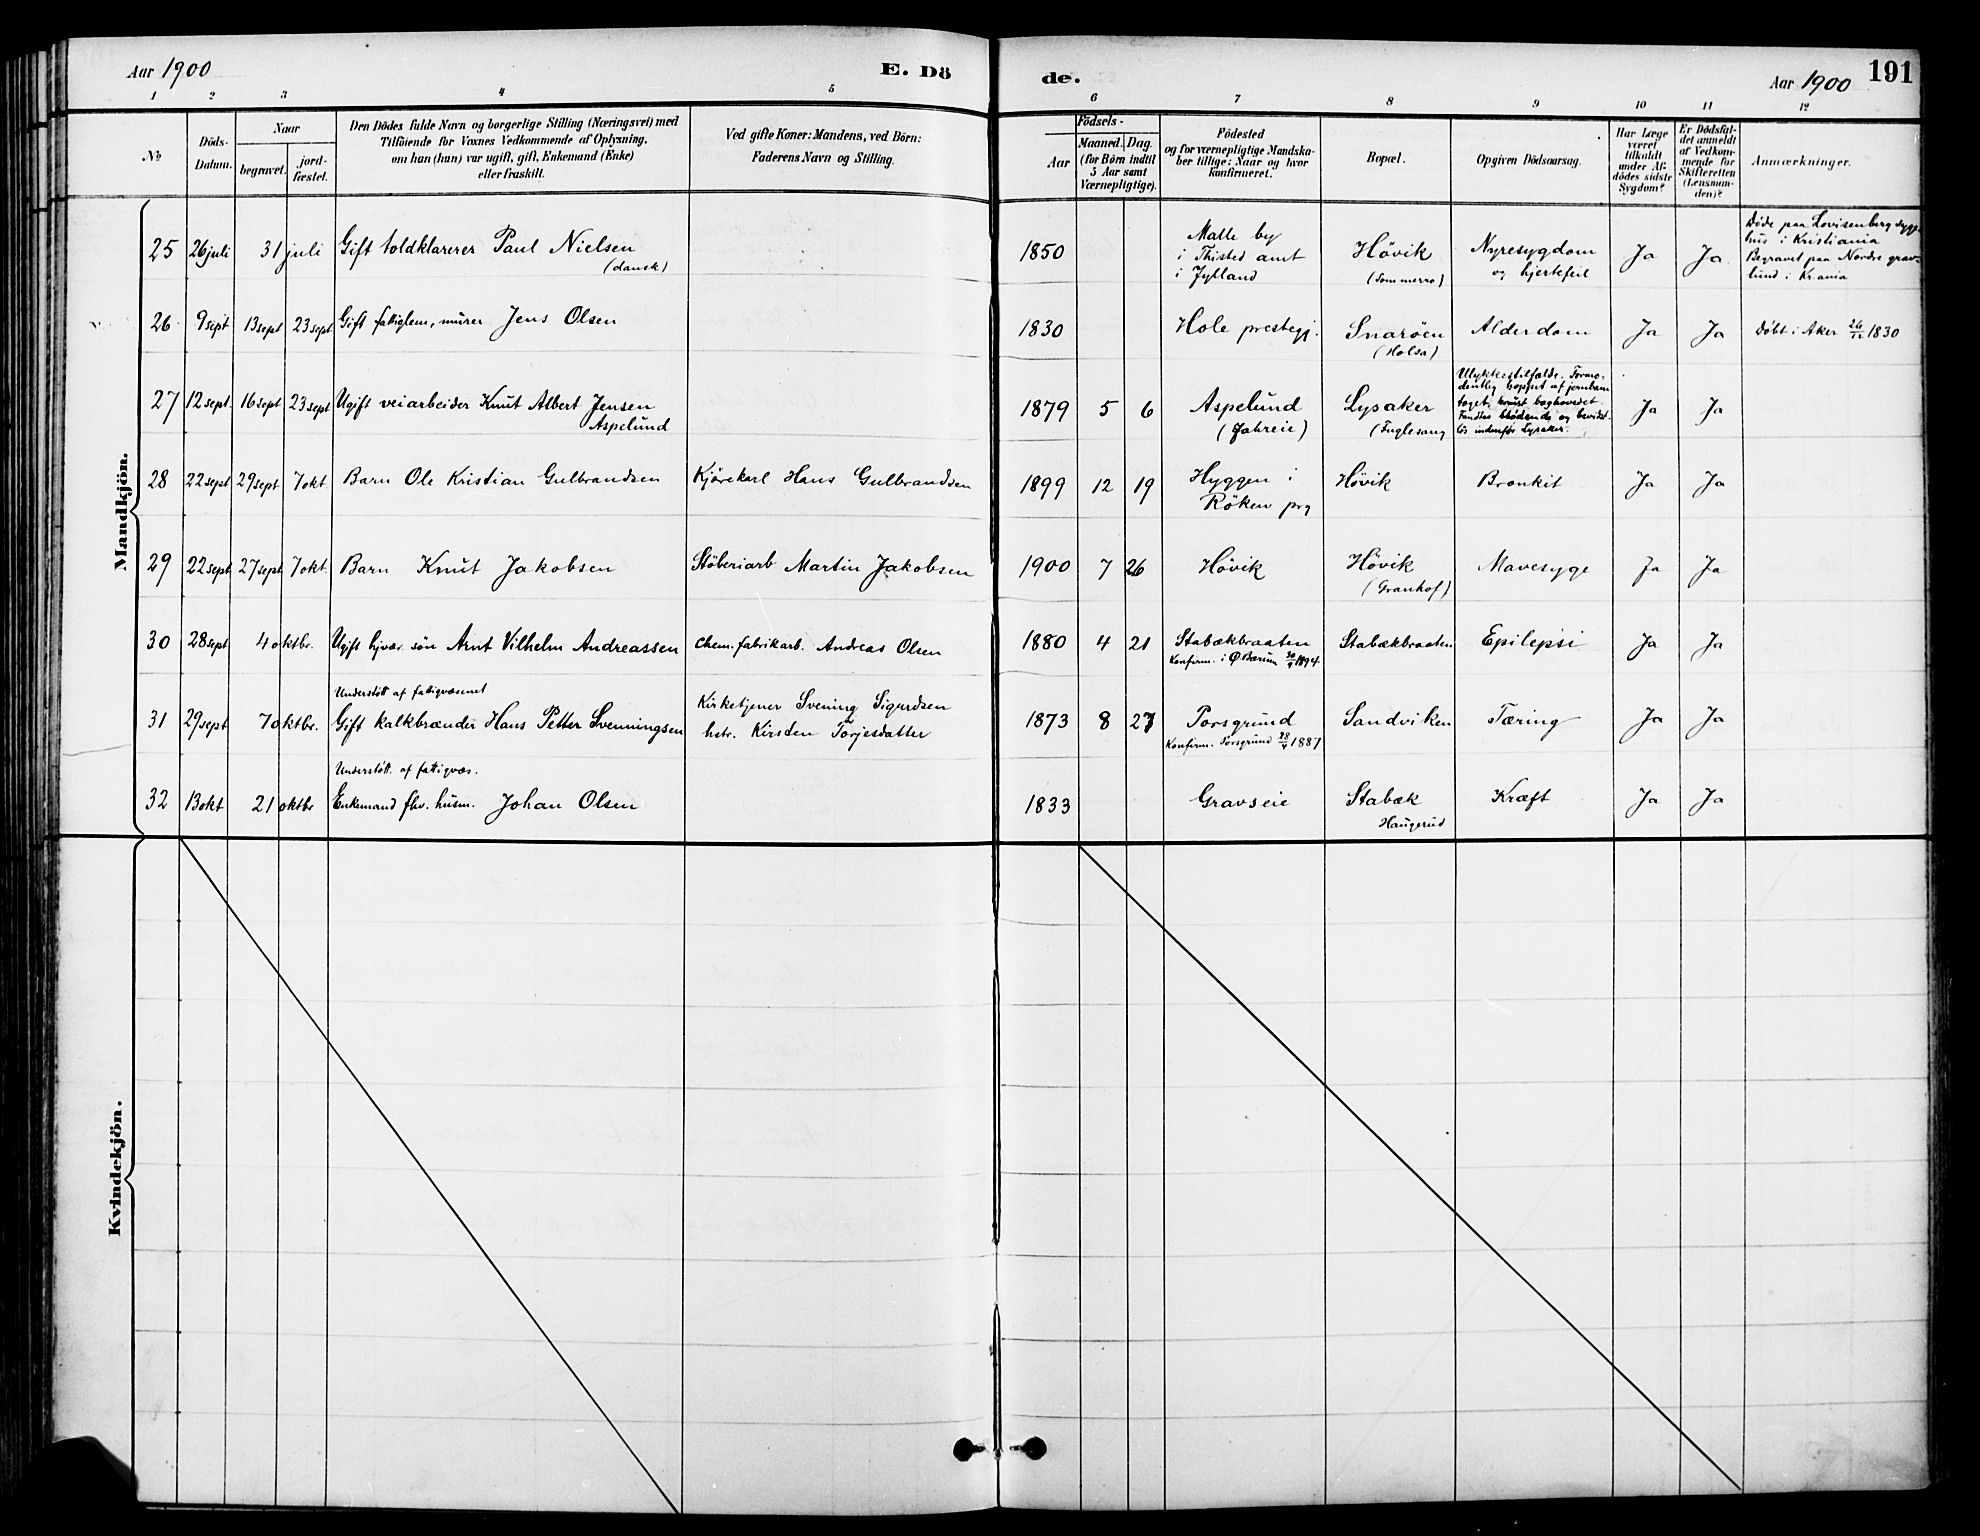 Aar 1900
E. Dö
de.
Aar 1900
191
1 2 3 4 5 6 7 8 9 10 11 12
No
Döds-
Datum.
Naar
begravet.
jord-
fæstet.
Den Dödes fulde Navn og borgerlige Stilling (Næringsvei) med
Tilföiende for Voxnes Vedkommende af Oplysning,
om han (hun) var ugift, gift, Enkemand (Enke)
eller fraskilt.
Ved gifte Koner: Mandens, ved Börn:
Faderens Navn og Stilling.
Födsels-
Aar
Maaned. Dag.
(for Börn indtil
5 Aar samt
Værnepligtige).
Födested
og for værnepligtige Mandska-
ber tillige: Naar og hvor
konfirmeret.
Bopæl.
Opgiven Dödsaarsag.
Har Læge
været
tilkaldt
under Af-
dödes sidste
Sygdom?
Er Dödsfal-
det anmeldt
af Vedkom-
mende for
Skifteretten
(Lensman-
den)?
Anmærkninger.
Mandkjön.
25 26 juli 31 juli Gift toldklarerer Paul Nielsen
(dansk)
1850
Malle by
i Thisted amt
i Jylland
Høvik
(Sommerro)
Nyresygdom
og hjertefeil
Ja Ja
Døde paa Lovisenberg syge-
hus i Kristiania
Begravet paa Nordre grav-
lund i Krania
26 9 sept 13 sept 23 sept Gift fattiglem, murer Jens Olsen
1830 Hole prestegj. Snarøen
(Holsa)
Alderdom Ja Ja Døbt i Aker 26/12 1830
27 12 sept. 16 sept 23 sept Ugift veiarbeider Knut Albert Jensen
Aspelund
1879 5 6 Aspelund
(Jahreie)
Lysaker
(Fuglesang
Ulykkestilfælde. Formo-
dentlig hoppet af jernbane
toget, knust baghovedet.
Fandtes blødende og bevidst-
løs indenfor Lysaker.
Ja Ja
28 22 sept 29 sept 7 okt Barn Ole Kristian Gulbrandsen Kjørekarl Hans Gulbrandsen
1899 12 19 Hyggen i
Røken prg
Høvik Bronkit Ja Ja
29 22 sept 27 sept 7 okt. Barn Knut Jakobsen Støberiarb Martin Jakobsen
1900 7 26 Høvik Høvik
(Granhof)
Mavesyge Ja Ja
30 28 sept 4 oktbr. Ugift hjvær. søn Arnt Vilhelm Andreassen Chem. fabrikarb. Andreas Olsen
1880 4 21 Stabækbraaten
Konfirm. i Ø Bærum 30/9 1894
Stabækbraaten Epilepsi Ja Ja
Understøtt af fattigvæsenet
31 29 sept 7 oktbr. Gift kalkbrænder Hans Petter Svenningsen
Kirketjener Svening Sigurdsen
hstr. Kirsten Torjesdatter
1873 8 27 Porsgrund
Konfirm. Porsgrund 28/9 1887
Sandviken Tæring Ja Ja
Understøtt. af fattigvæs.
32 13 okt 21 oktbr Enkemand fhv. husm. Johan Olsen
1833 Gravseie Stabæk
Haugerud
Kræft Ja Ja
Kvindekjön.